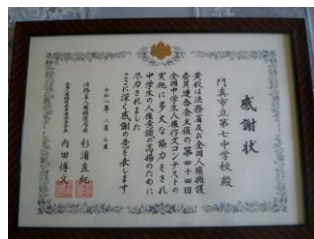 感謝状
門真市立第七中学校 殿
貴校は法務省及び全国人権擁護
委員連合会主催の第四十四回
全国中学生人権作文コンテストの
実施に多大な協力をされ
中学生の人権意識の高揚のために
尽力されました
ここに深く感謝の意を表します
令和八年二月
法務省人権擁護局長 杉浦直紀
全国人権擁護委員連合会長 内田博文